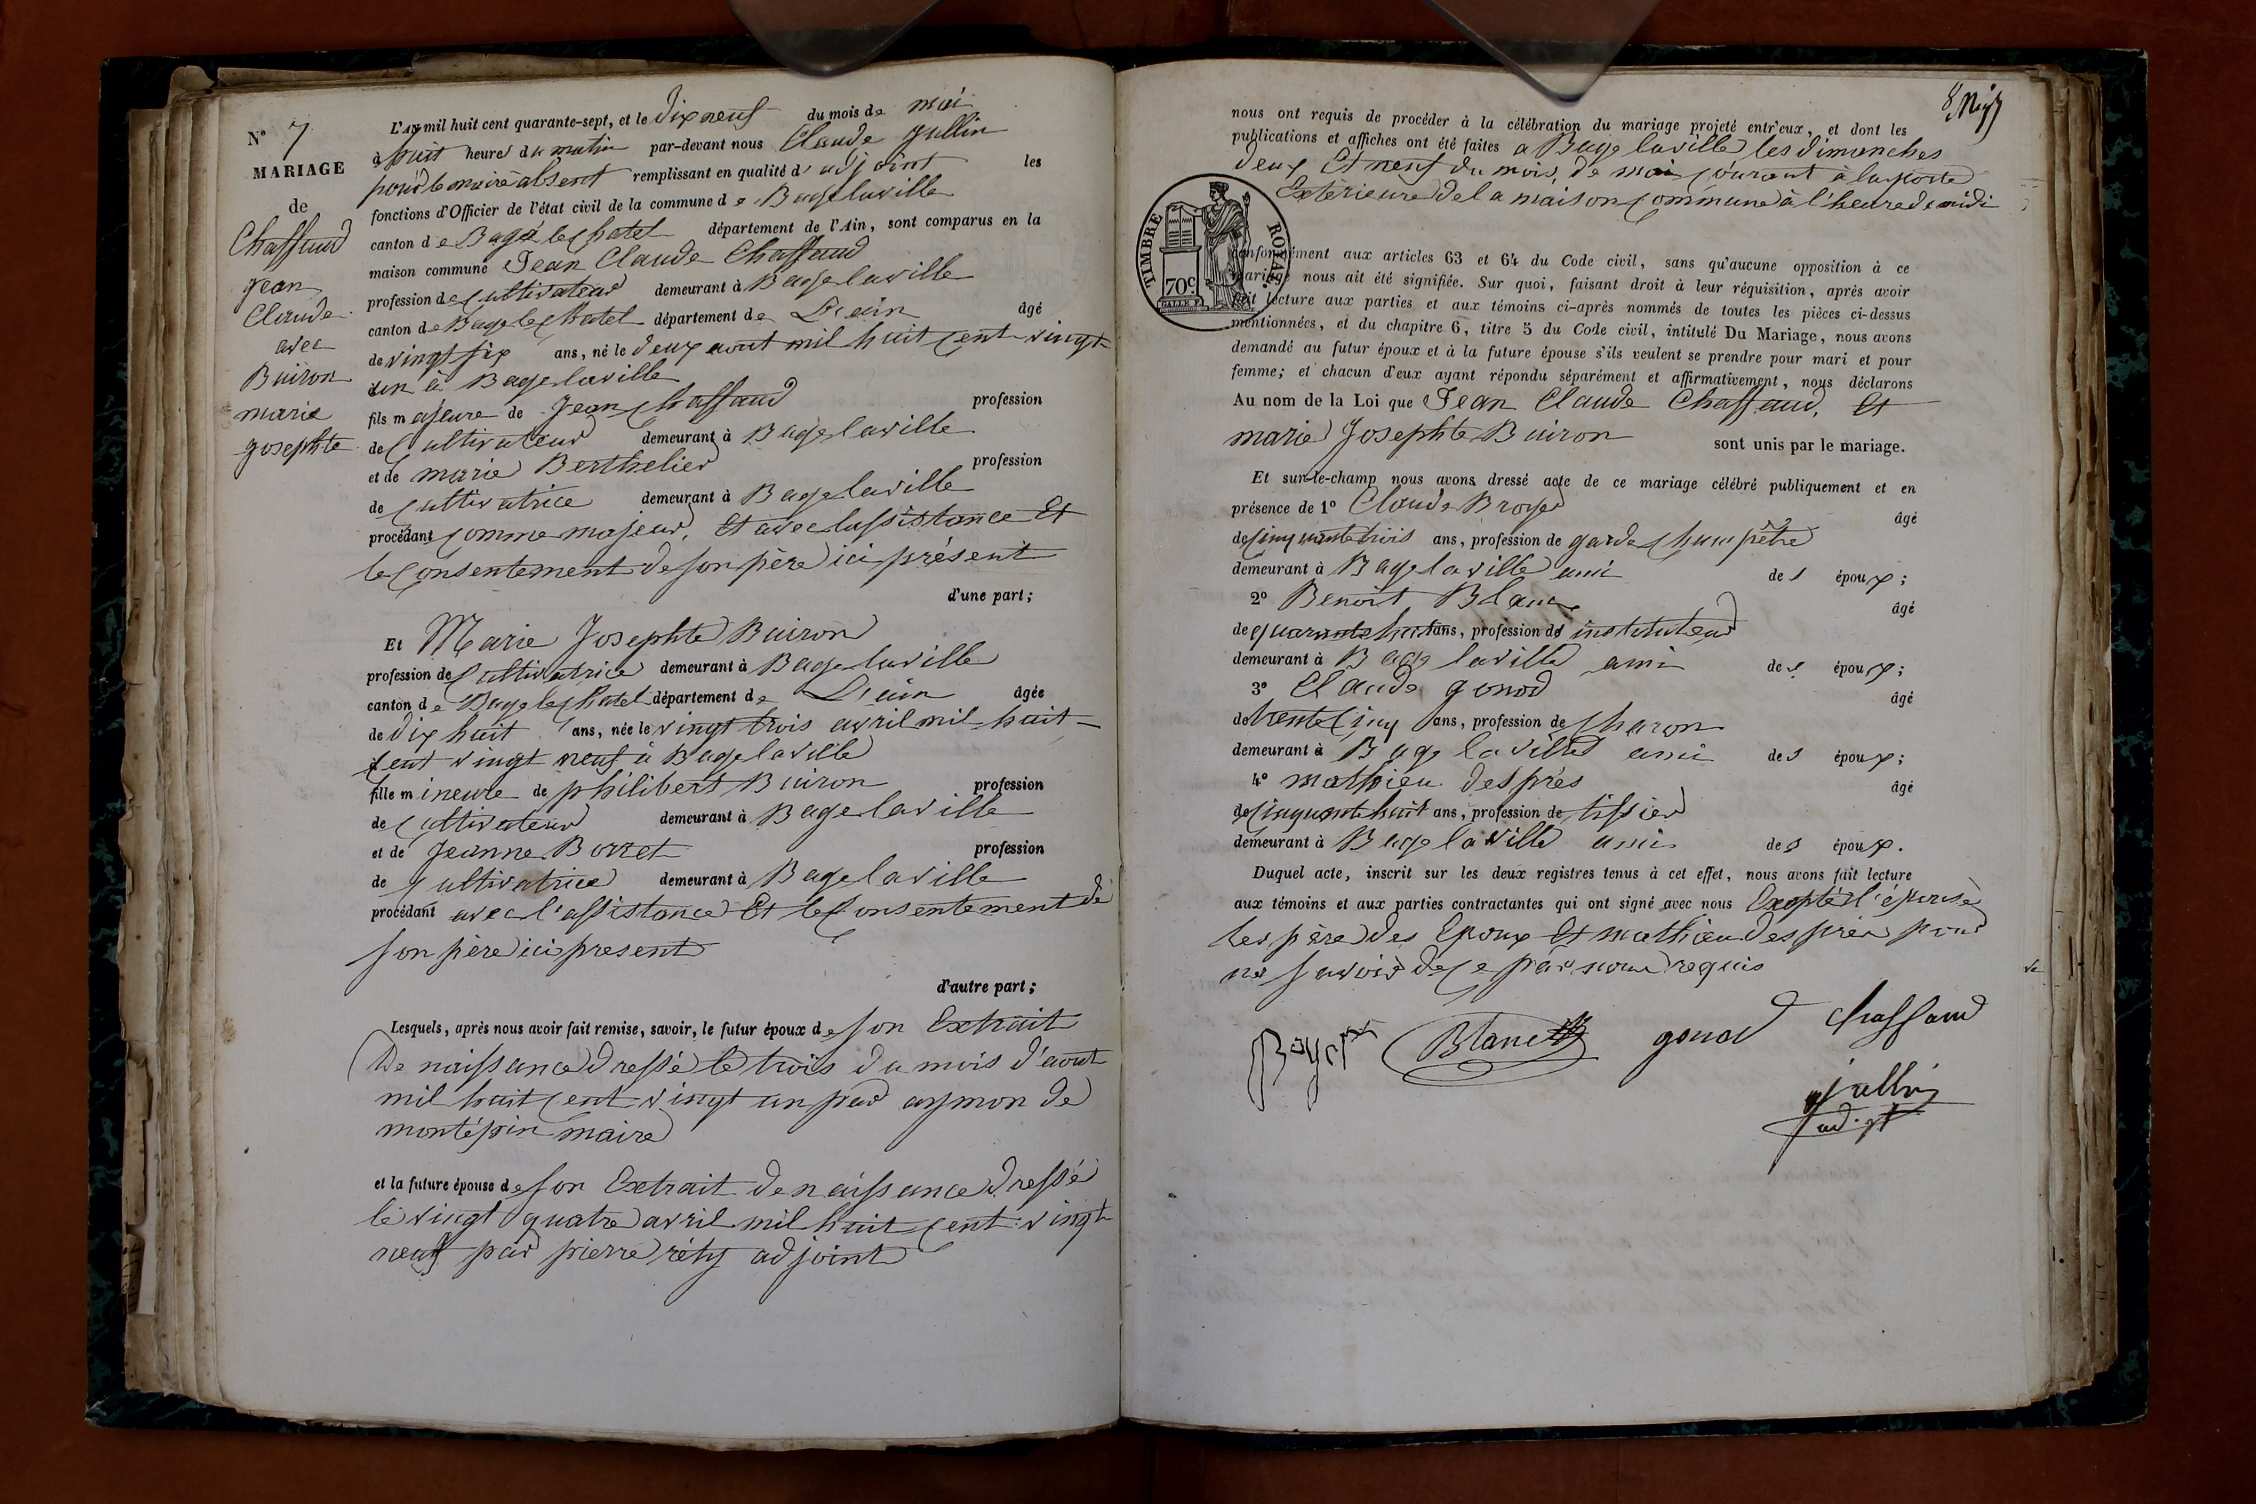 N° 7
MARIAGE
de
Chaffaud
jean
Claude
avec
Buiron
marie
josephte
L'An mil huit cent quarante-sept, et le dix neuf du mois de mai
à huit heures du matin par-devant nous Claude jullin
pour le maire absent remplissant en qualité d'adjoint les
fonctions d'Officier de l'état civil de la commune de Bagelaville
canton de Bagé le chatel département de l'Ain, sont comparus en la
maison commune Jean Claude Chaffaud
profession de Cultivateur demeurant à Bagelaville
canton de Bage le chatel département de L'ain âgé
de vingt six ans, né le deux aout mil huit cent vingt
un à Bagelaville
fils majeure de Jean chaffaud profession
de Cultivateur demeurant à Bagelaville
et de marie Berthelier profession
de Cultivatrice demeurant à Bagelaville
procédant comme majeur, Et avec lassistance Et
le Consentement de son père ici présent
d'une part;
Et Marie Josephte Buiron
profession de Cultivatrice demeurant à Bagelaville
canton de Bage le chatel département de L'ain âgée
de dix huit ans, née le vingt trois avril mil huit
cent vingt neuf à Bagelaville
fille mineure de philibert Buiron profession
de Cultivateur demeurant à Bagelaville
et de Jeanne Borret profession
de Cultivatrice demeurant à Bagelaville
procédant avec l'assistance Et le Consentement de
son père ici present
d'autre part;
Lesquels, après nous avoir fait remise, savoir, le futur époux de son Extrait
De naissance dressé le trois du mois d'aout
mil huit cent vingt un par aymon de
montépin maire
et la future épouse de son Extrait de naissance dressé
le vingt quatre avril mil huit cent vingt
neuf par pierre réty adjoint
8
nous ont requis de procéder à la célébration du mariage projeté entr'eux, et dont les
publications et affiches ont été faites a Bage laville les dimanches
deux Et neuf du mois de mai courant à la porte
Exterieure de la maison commune à l'heure de midi
TIMBRE ROYAL
70c.
conformément aux articles 63 et 64 du Code civil, sans qu'aucune opposition à ce
mariage nous ait été signifiée. Sur quoi, faisant droit à leur réquisition, après avoir
fait lecture aux parties et aux témoins ci-après nommés de toutes les pièces ci-dessus
mentionnées, et du chapitre 6, titre 5 du Code civil, intitulé Du Mariage, nous avons
demandé au futur époux et à la future épouse s'ils veulent se prendre pour mari et pour
femme; et chacun d'eux ayant répondu séparément et affirmativement, nous déclarons
Au nom de la Loi que Jean Claude Chaffaud, Et
marie Josephte Buiron sont unis par le mariage.
Et sur-le-champ nous avons dressé acte de ce mariage célébré publiquement et en
présence de 1° Claude Broyer âgé
de Cinquante trois ans, profession de garde champêtre
demeurant à Bagelaville ami des époux;
2° Benoit Blanc âgé
de quarante huit ans, profession d'instituteur
demeurant à Bage laville ami des époux;
3° Claude gonod âgé
de trente Cinq ans, profession de charon
demeurant à Bage laville ami des époux;
4° mathieu desprès âgé
de Cinquante huit ans, profession de tissier
demeurant à Bage laville ami des époux.
Duquel acte, inscrit sur les deux registres tenus à cet effet, nous avons fait lecture
aux témoins et aux parties contractantes qui ont signé avec nous Excepté l'épouse
les père des Epoux Et mathieu desprès pour
ne savoir de ce par nous requis
Blanc gonod chaffaud
jullin
adjt